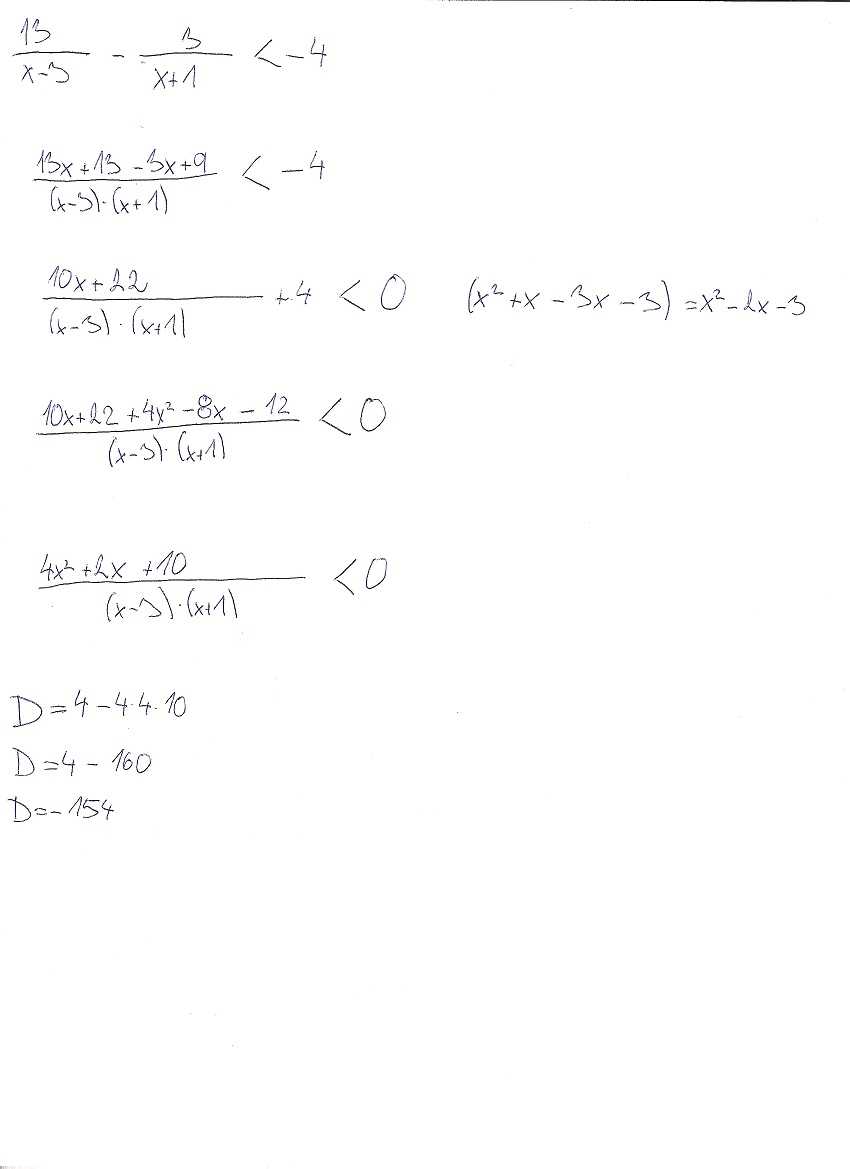 13/(x-3) - 3/(x+1) < -4
(13x+13-3x+9)/((x-3)·(x+1)) < -4
(10x+22)/((x-3)·(x+1)) +4 < 0 (x²+x-3x-3) = x²-2x-3
(10x+22+4x²-8x-12)/((x-3)·(x+1)) < 0
(4x²+2x+10)/((x-3)·(x+1)) < 0
D=4-4·4·10
D=4-160
D=-154